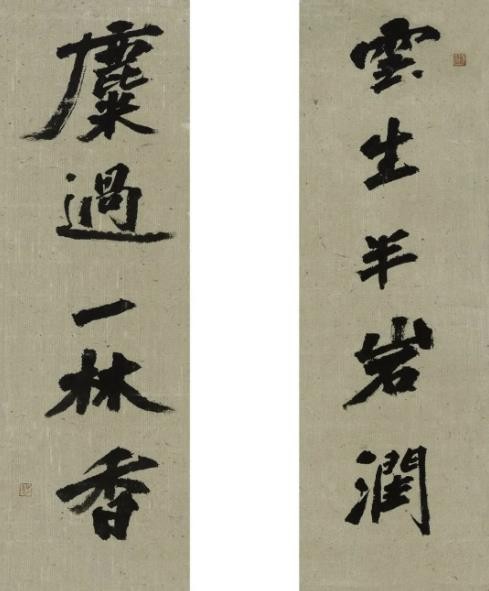 雲生半岩潤
麋過一林香